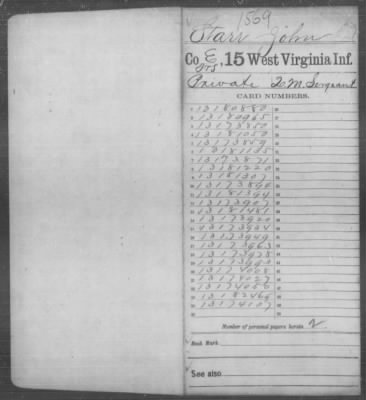 1559
Starr, John
Co. E, 15 West Virginia Inf.
Private Q M Sergeant
CARD NUMBERS.
1 13180880
2 13180965
3 13173850
4 13181050
5 13173859
6 13181135
7 13173871
8 13181220
9 13181307
10 13173890
11 13181394
12 13173907
13 13181481
14 13173920
15 13173934
16 13173949
17 13173963
18 13173978
19 13173993
20 13174008
21 13174027
22 13174056
23 13182466
24 13174107
Number of personal papers herein 2
Book Mark:
See also